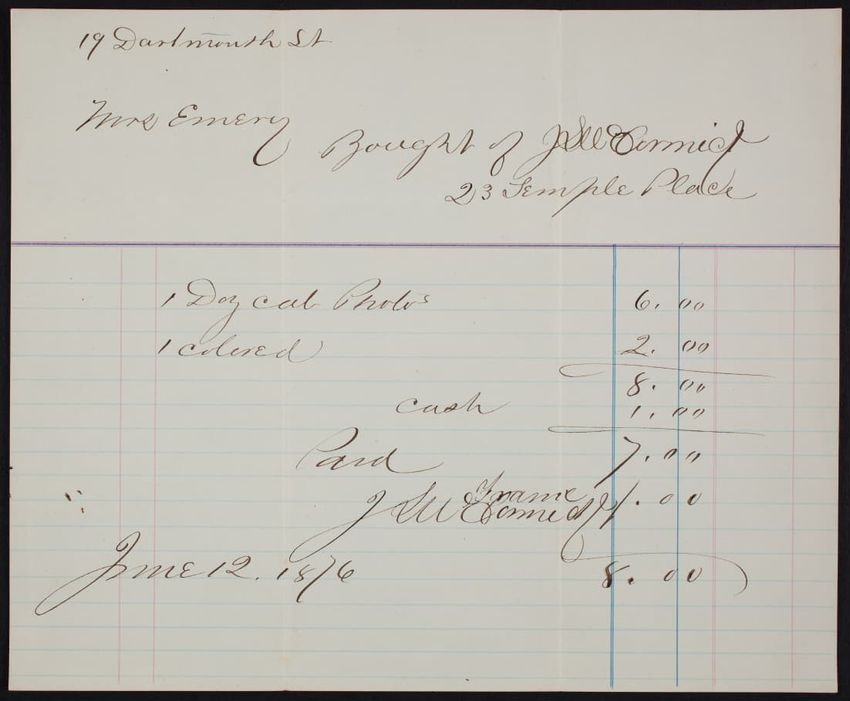 19 Dartmouth St
Mrs Emery
Bought of J S McCormick
23 Temple Place
1 Doz cab Photos 6.00
1 colored 2.00
8.00
cash 1.00
Paid 7.00
Frame 1.00
J S McCormick
June 12. 1876 8.00